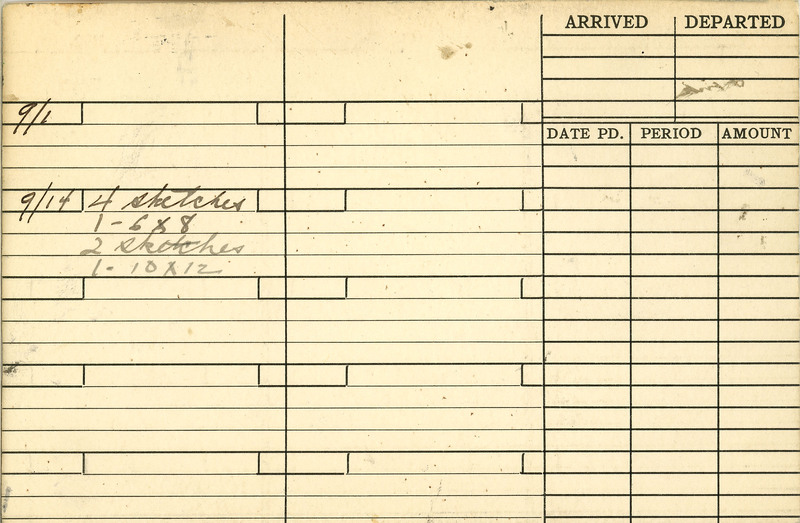 ARRIVED DEPARTED
9/1
DATE PD. PERIOD AMOUNT
9/14 4 sketches
1-6x8
2 sketches
1-10x12